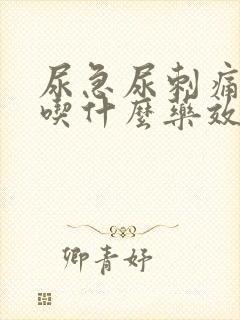 尿急尿刺痛
喫什麼藥效
卿青妤